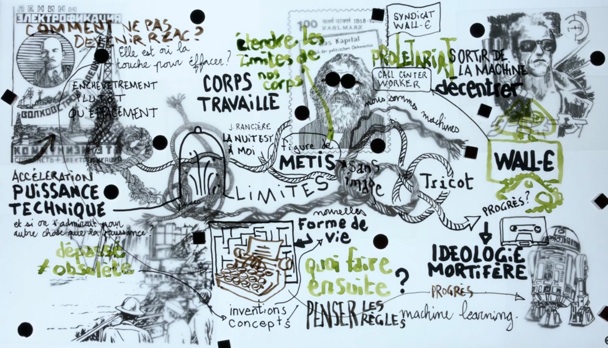 ЭЛЕКТРОФИКАЦИЯ
COMMENT NE PAS
DEVENIR RZAC?
Elle est où la
touche pour effacer?
ENCHEVÊTREMENT
PLUTÔT
QU'EFFACEMENT
étendre les
limites de
nos
corps
CORPS
TRAVAILLE
100
KARL MARX
Das Kapital
SYNDICAT
WALL-E
PROLÉTARIAT
CALL CENTER
WORKER
SORTIR DE
LA MACHINE
décentrer
nous sommes machines
J. RANCIÈRE
LA NUIT EST
À MOI
Figure de
METIS
sans
image
LIMITES
Tricot
WALL-E
PROGRÈS?
ACCÉLÉRATION
PUISSANCE
TECHNIQUE
et si on l'admirait pour
autre chose que la puissance
dépassé
≠ obsolète
nouvelles
Forme de
vie
IDEOLOGIE
MORTIFÈRE
quoi faire
ensuite ?
inventions
concepts
PENSER LES
RÈGLES
PROGRÈS
machine learning.